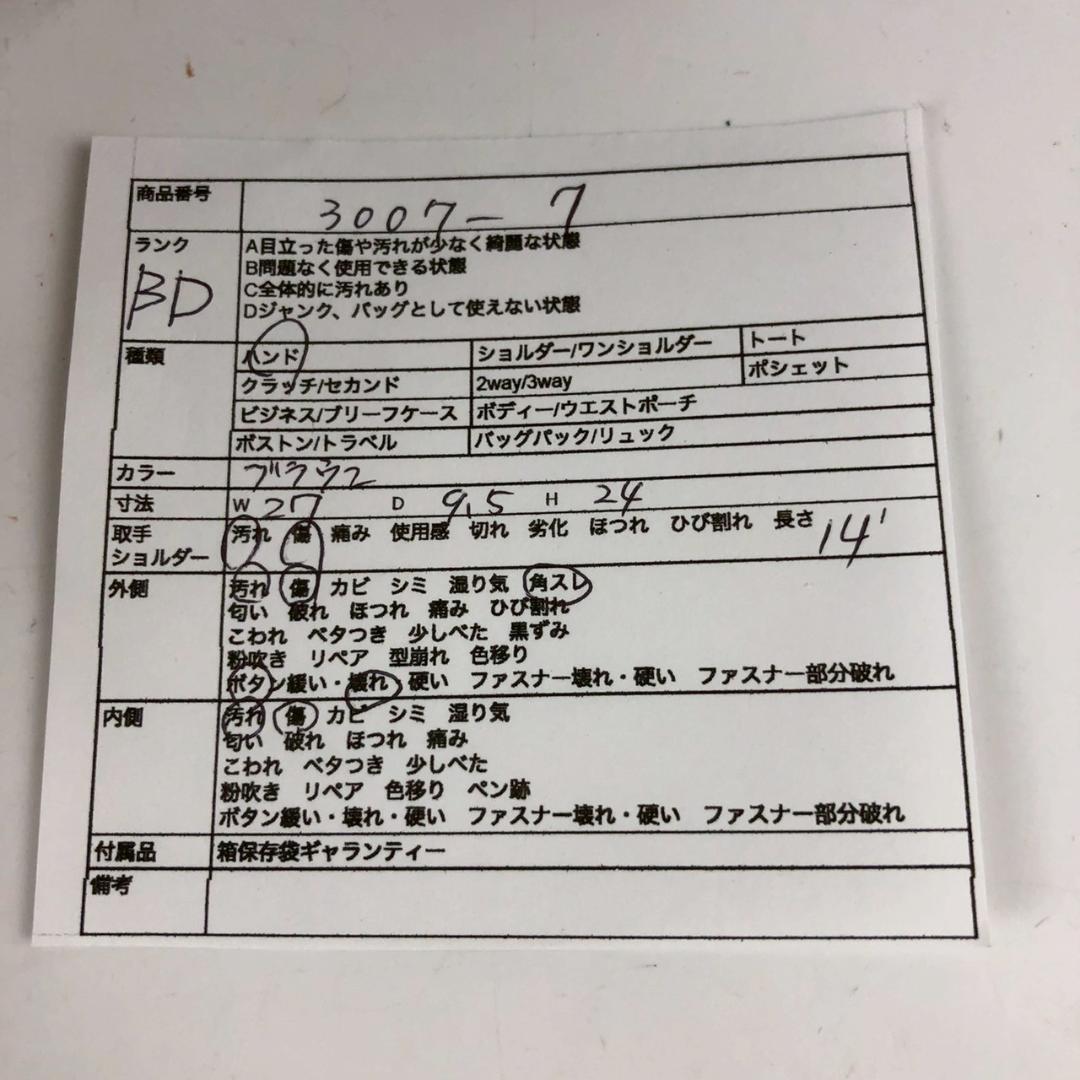 商品番号 3007-7
ランク BD
A目立った傷や汚れが少なく綺麗な状態
B問題なく使用できる状態
C全体的に汚れあり
Dジャンク、バッグとして使えない状態
種類 ハンド ショルダー/ワンショルダー トート
クラッチ/セカンド 2way/3way ポシェット
ビジネス/ブリーフケース ボディー/ウエストポーチ
ボストン/トラベル バッグパック/リュック
カラー ブラウン
寸法 W 27 D 9.5 H 24
取手 汚れ 傷 痛み 使用感 切れ 劣化 ほつれ ひび割れ 長さ 14
ショルダー
外側 汚れ 傷 カビ シミ 湿り気 角スレ
匂い 破れ ほつれ 痛み ひび割れ
こわれ ベタつき 少しべた 黒ずみ
粉吹き リペア 型崩れ 色移り
ボタン緩い・壊れ・硬い ファスナー壊れ・硬い ファスナー部分破れ
内側 汚れ 傷 カビ シミ 湿り気
匂い 破れ ほつれ 痛み
こわれ ベタつき 少しべた
粉吹き リペア 色移り ペン跡
ボタン緩い・壊れ・硬い ファスナー壊れ・硬い ファスナー部分破れ
付属品 箱保存袋ギャランティー
備考